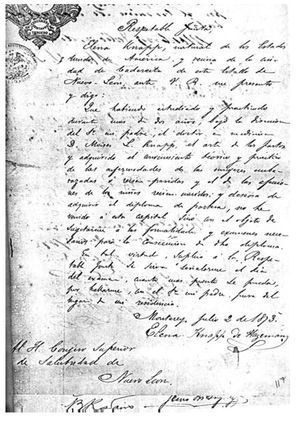 Respetable Junta
Elena Knapp, natural de los Estados
Unidos de America y vecina de la ciu
dad de Cadereita de este Estado de
Nuevo Leon, ante V. R. me presento
y digo
Que habiendo estudiado y practicado
durante mas de dos años bajo la direccion
del Sr. mi padre, el doctor en medicina
D. Moises L. Knapp, el arte de los partos
y adquirido el conocimiento teorico y practico
de las enfermedades de las mujeres emba-
razadas ó recien paridas y el de las afeccio
nes de los niños recien nacidos, y deseosa de
adquirir el diploma de partera, he ve
nido á esta capital con el objeto de
sugetarme á las formalidades y examenes nece
sarios para la concesion de dho diploma.
En tal virtud, Suplico á la Respe
table Junta se sirva señalarme el dia
del examen, cuanto mas pronto se pueda,
por hallarme, con el Sr. mi padre, fuera del
lugar de mi residencia.
Monterey, Julio 2 de 1873.
Elena Knapp de Hageman
Al H. Consejo Superior
de Salubridad de
Nuevo Leon.